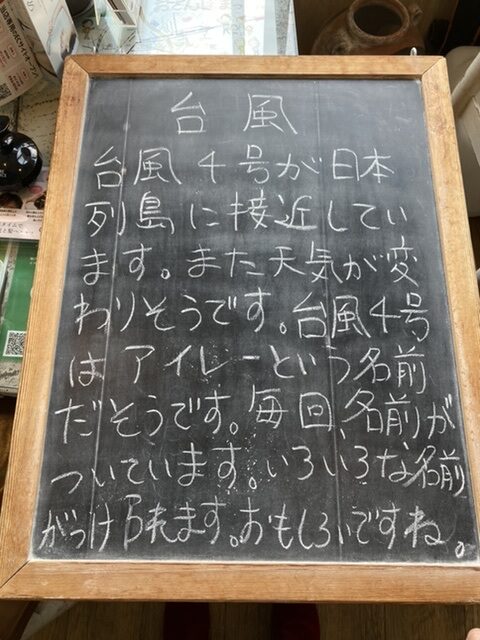 台風
台風4号が日本
列島に接近してい
ます。また天気が変
わりそうです。台風4号
は アイレーという名前
だそうです。毎回名前が
ついています。いろいろな名前
がつけられます。おもしろいですね。